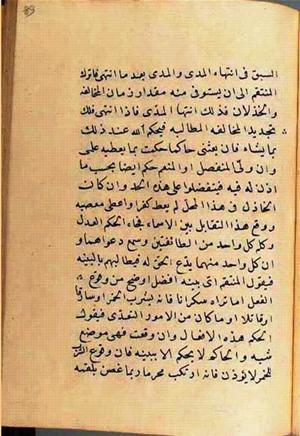 السبق في انتهاء المدى والمدى بعد ما انتهى فاترك
المنتقم الى ان يستوفى منه مقدار زمان المخالفه
والخذلان فذلك انتها المدى فاذا انتهى فلك
تجديد المخالفه المطالبه فيحكم الله عند ذلك
بما يشاء فان بعثنى حاكما حكمت بما يعطيه علمى
وان ولى المتفضل او المنعم حكم ايضا بحسب ما
اذن له فيه فيتفضلوا على هذه الحد وان كان
الخاذل في هذا المحل لم يعط كفرا واعطى معصيه
ووقع هذا التقابل بين الاسماء فجاء الحكم العدل
وكلم كل واحد من الطائفتين وسمع دعواهما و
ان كل واحد منهما يدّع الحق له فيطالبهم بالبينه
فيقول المنتقم اى بينه افضل اوضح من وقوع
الفعل اما تراه سكرانا فانه يشرب الخمر او سارقا
او قاتلا او ما كان من الامور التعدى فيقول
الحكم هذه الافعال وان وقعت فهى موضع
شبه والحاكم لا يحكم الا ببينه فان وقوع الشرب
للخمر لا يوذن فانه ارتكب محرما ربما غص بلقمه